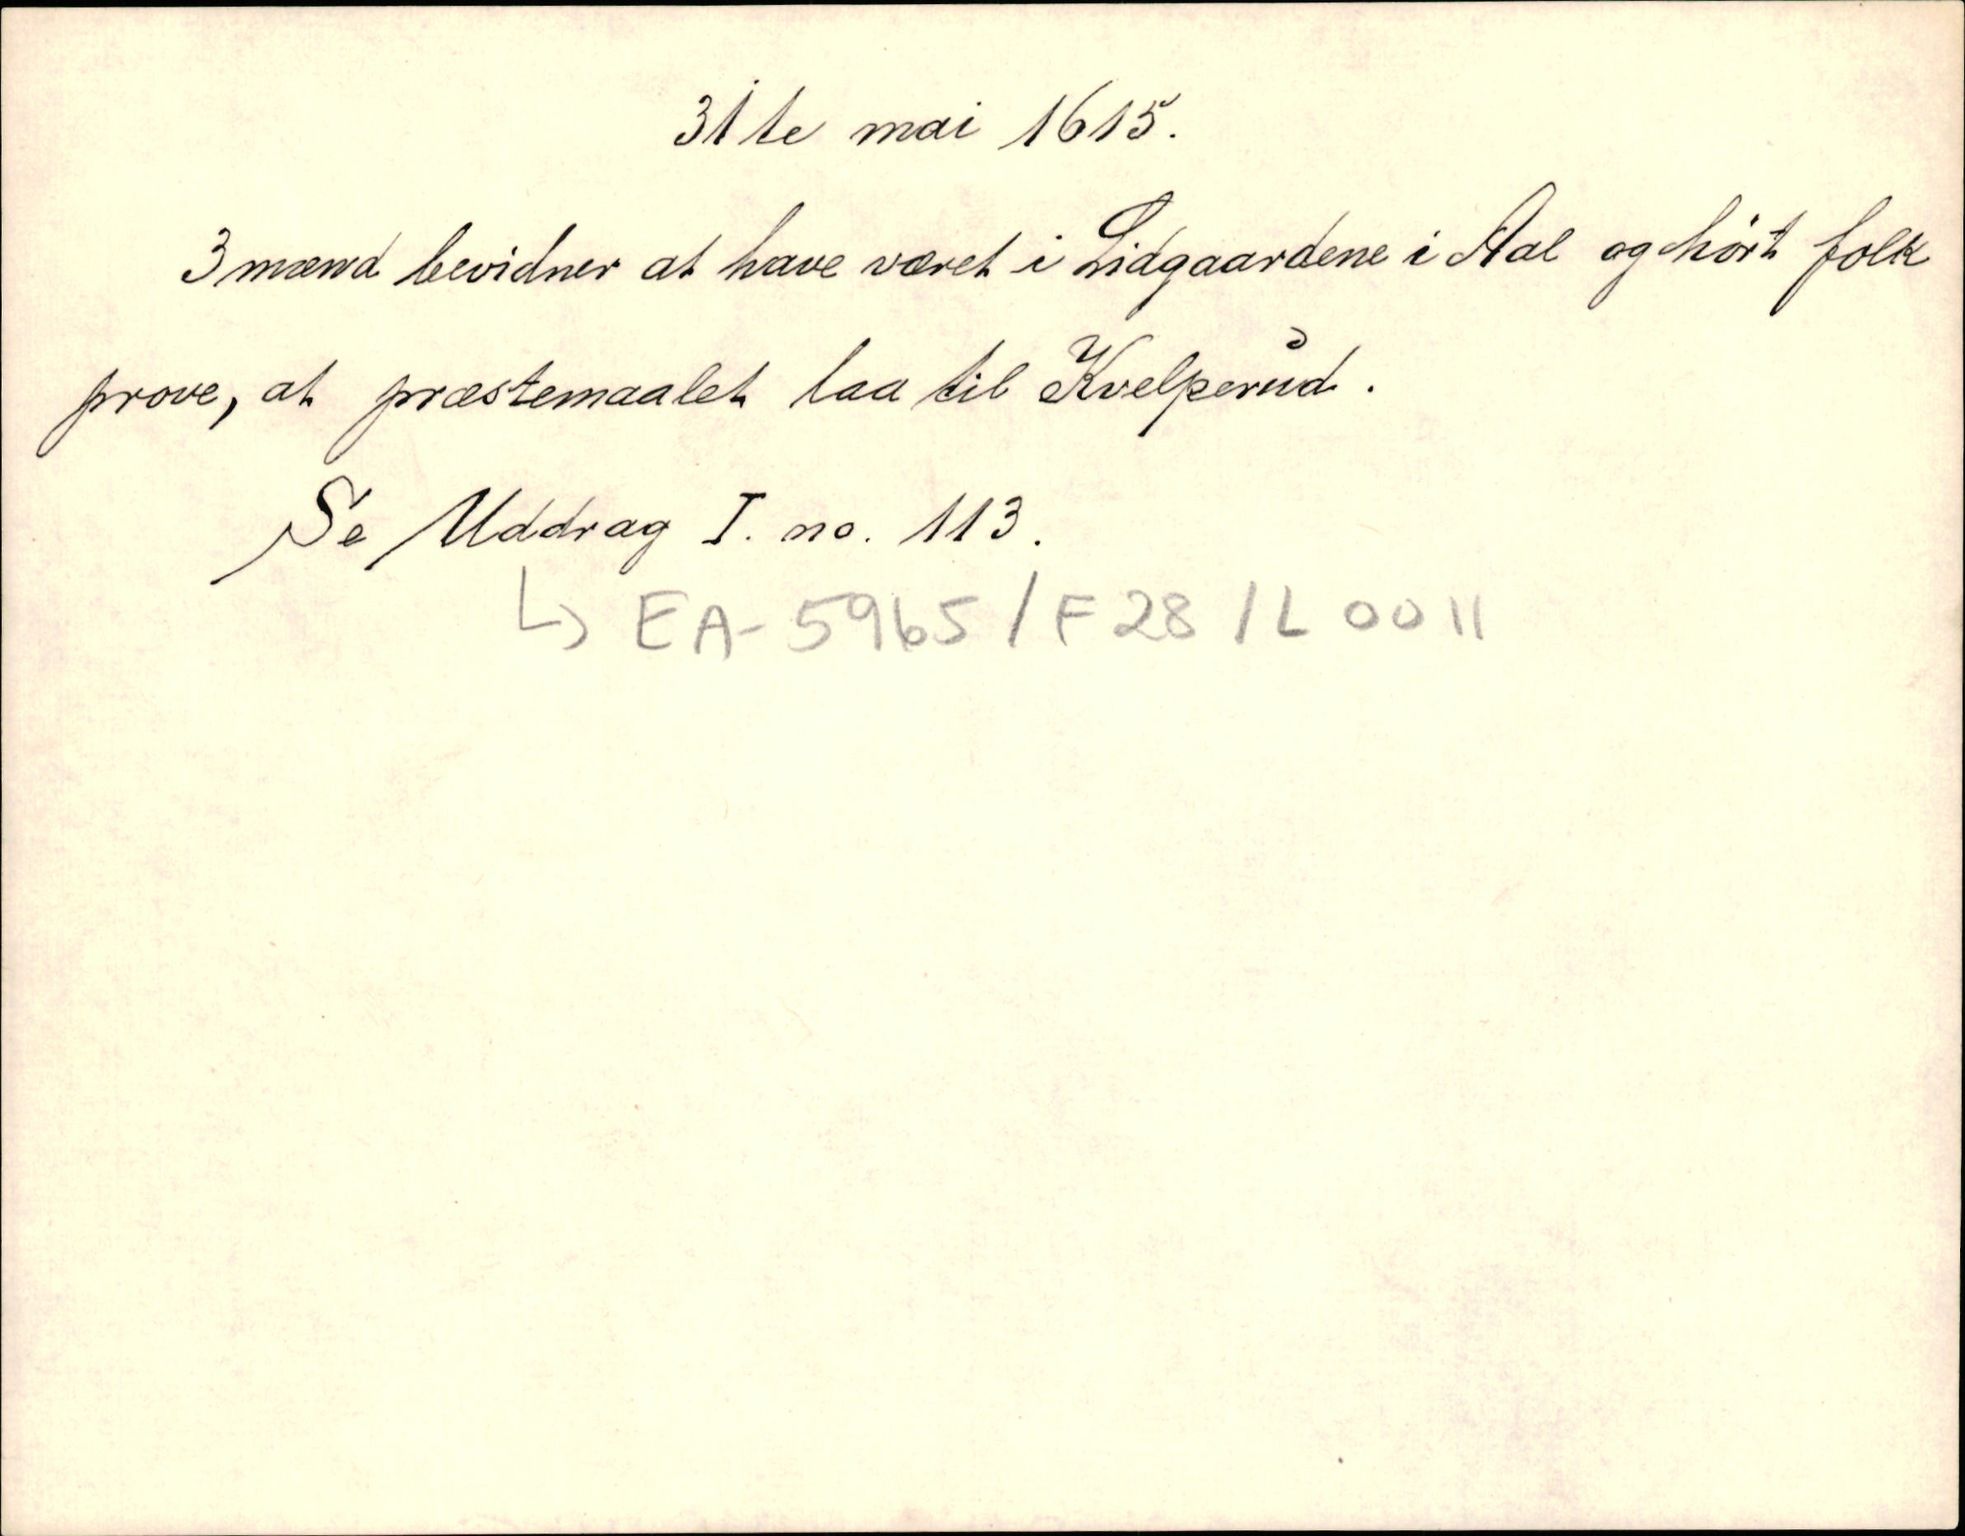 31te mai 1615.
3 mænd bevidner at have været i Lidgaardene i Aal og hört folk
prove, at præstemaalet laa til Kvelperud.
Se Uddrag I. no. 113.
↳ EA-5965/F28/L0011